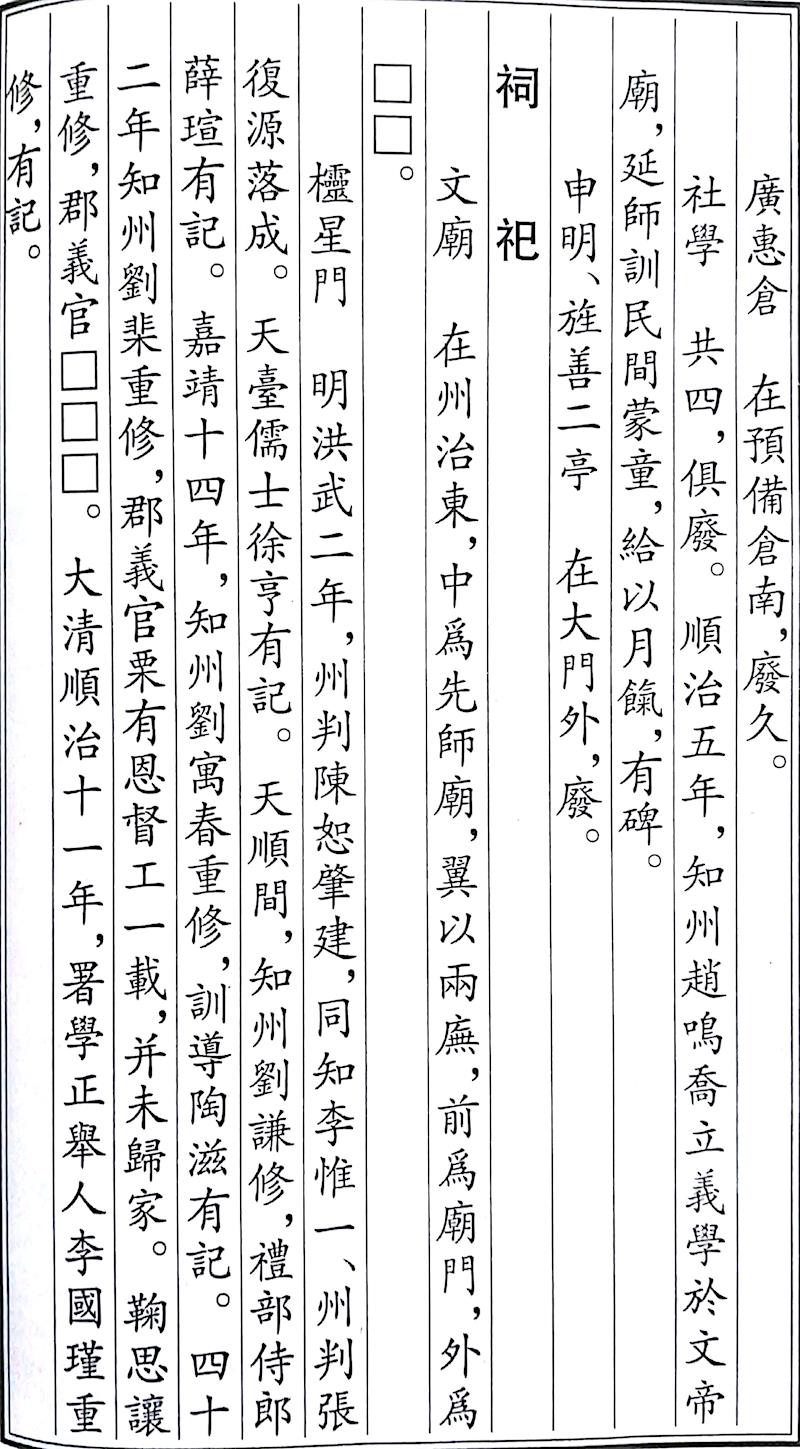 廣惠倉　在預備倉南，廢久。
社學　共四，俱廢。順治五年，知州趙鳴喬立義學於文帝
廟，延師訓民間蒙童，給以月餼，有碑。
申明、旌善二亭　在大門外，廢。
祠　祀
文廟　在州治東，中爲先師廟，翼以兩廡，前爲廟門，外爲
□□。
欞星門　明洪武二年，州判陳恕肇建，同知李惟一、州判張
復源落成。天臺儒士徐亨有記。天順間，知州劉謙修，禮部侍郎
薛瑄有記。嘉靖十四年，知州劉寓春重修，訓導陶滋有記。四十
二年知州劉棐重修，郡義官栗有恩督工一載，并未歸家。鞠思讓
重修，郡義官□□□。大清順治十一年，署學正舉人李國瑾重
修，有記。